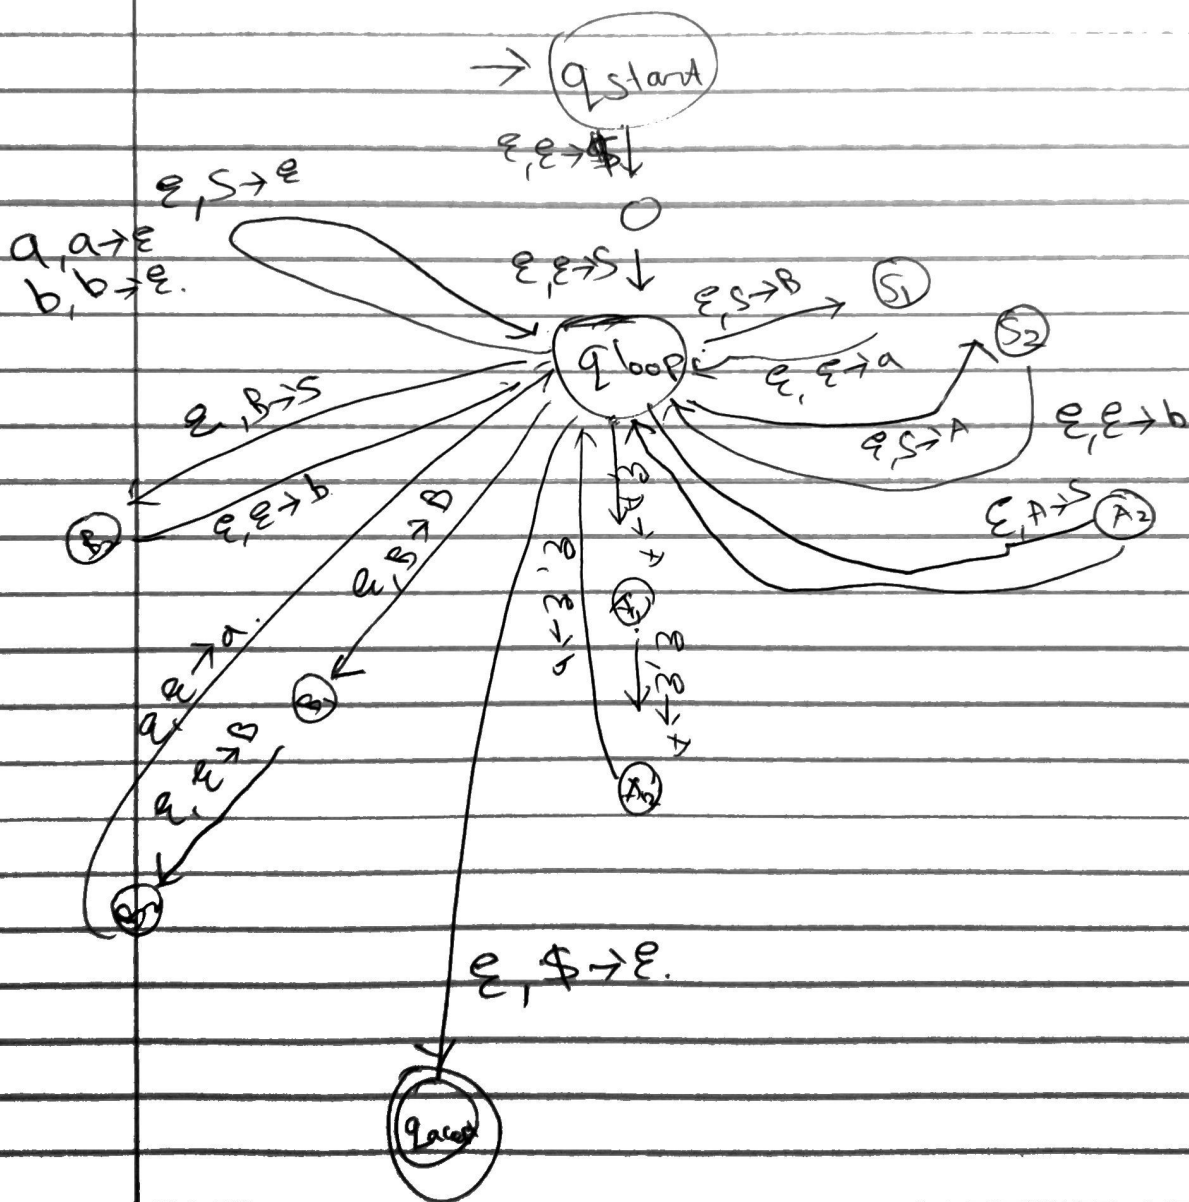 → qstart
ε,ε→$
ε,S→ε
a,a→ε
b,b→ε.
ε,ε→S
ε,S→B
S1
S2
qloop
ε,ε→a
ε,S→A
ε,ε→b
ε,B→S
ε,ε→b
ε,A→S
A2
ε,B→B
ε,A→A
ε,ε→a
A1
ε,ε→A
ε,ε→a.
ε,ε→B
A2
ε,$→ε.